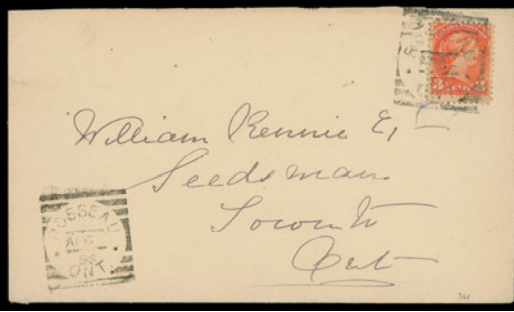 William Rennie Esq
Seedsman
Toronto
Ont
ROSSEAU
AP 6
95
ONT.